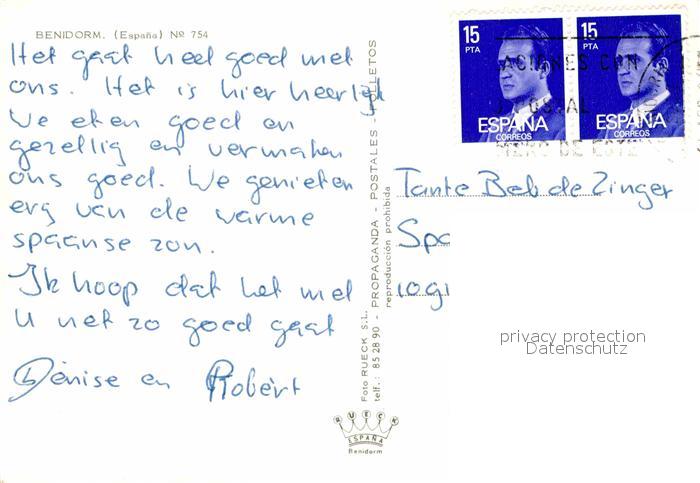 BENIDORM. (España) Nº 754
Het gaat heel goed met
ons. Het is hier heerlijk
We eten goed en
gezellig en vermaken
ons goed. We genieten
erg van de warme
spaanse zon.
Ik hoop dat het met
U net zo goed gaat
Denise en Robert
Foto RUECK S.L. - PROPAGANDA - POSTALES - FOLLETOS
telf.: 85 28 90
reproducción prohibida
RUECK
ESPAÑA
Benidorm
15
PTA
ESPAÑA
CORREOS
15
PTA
ESPAÑA
CORREOS
Tante Beb de Zinger
Spa
privacy protection
Datenschutz